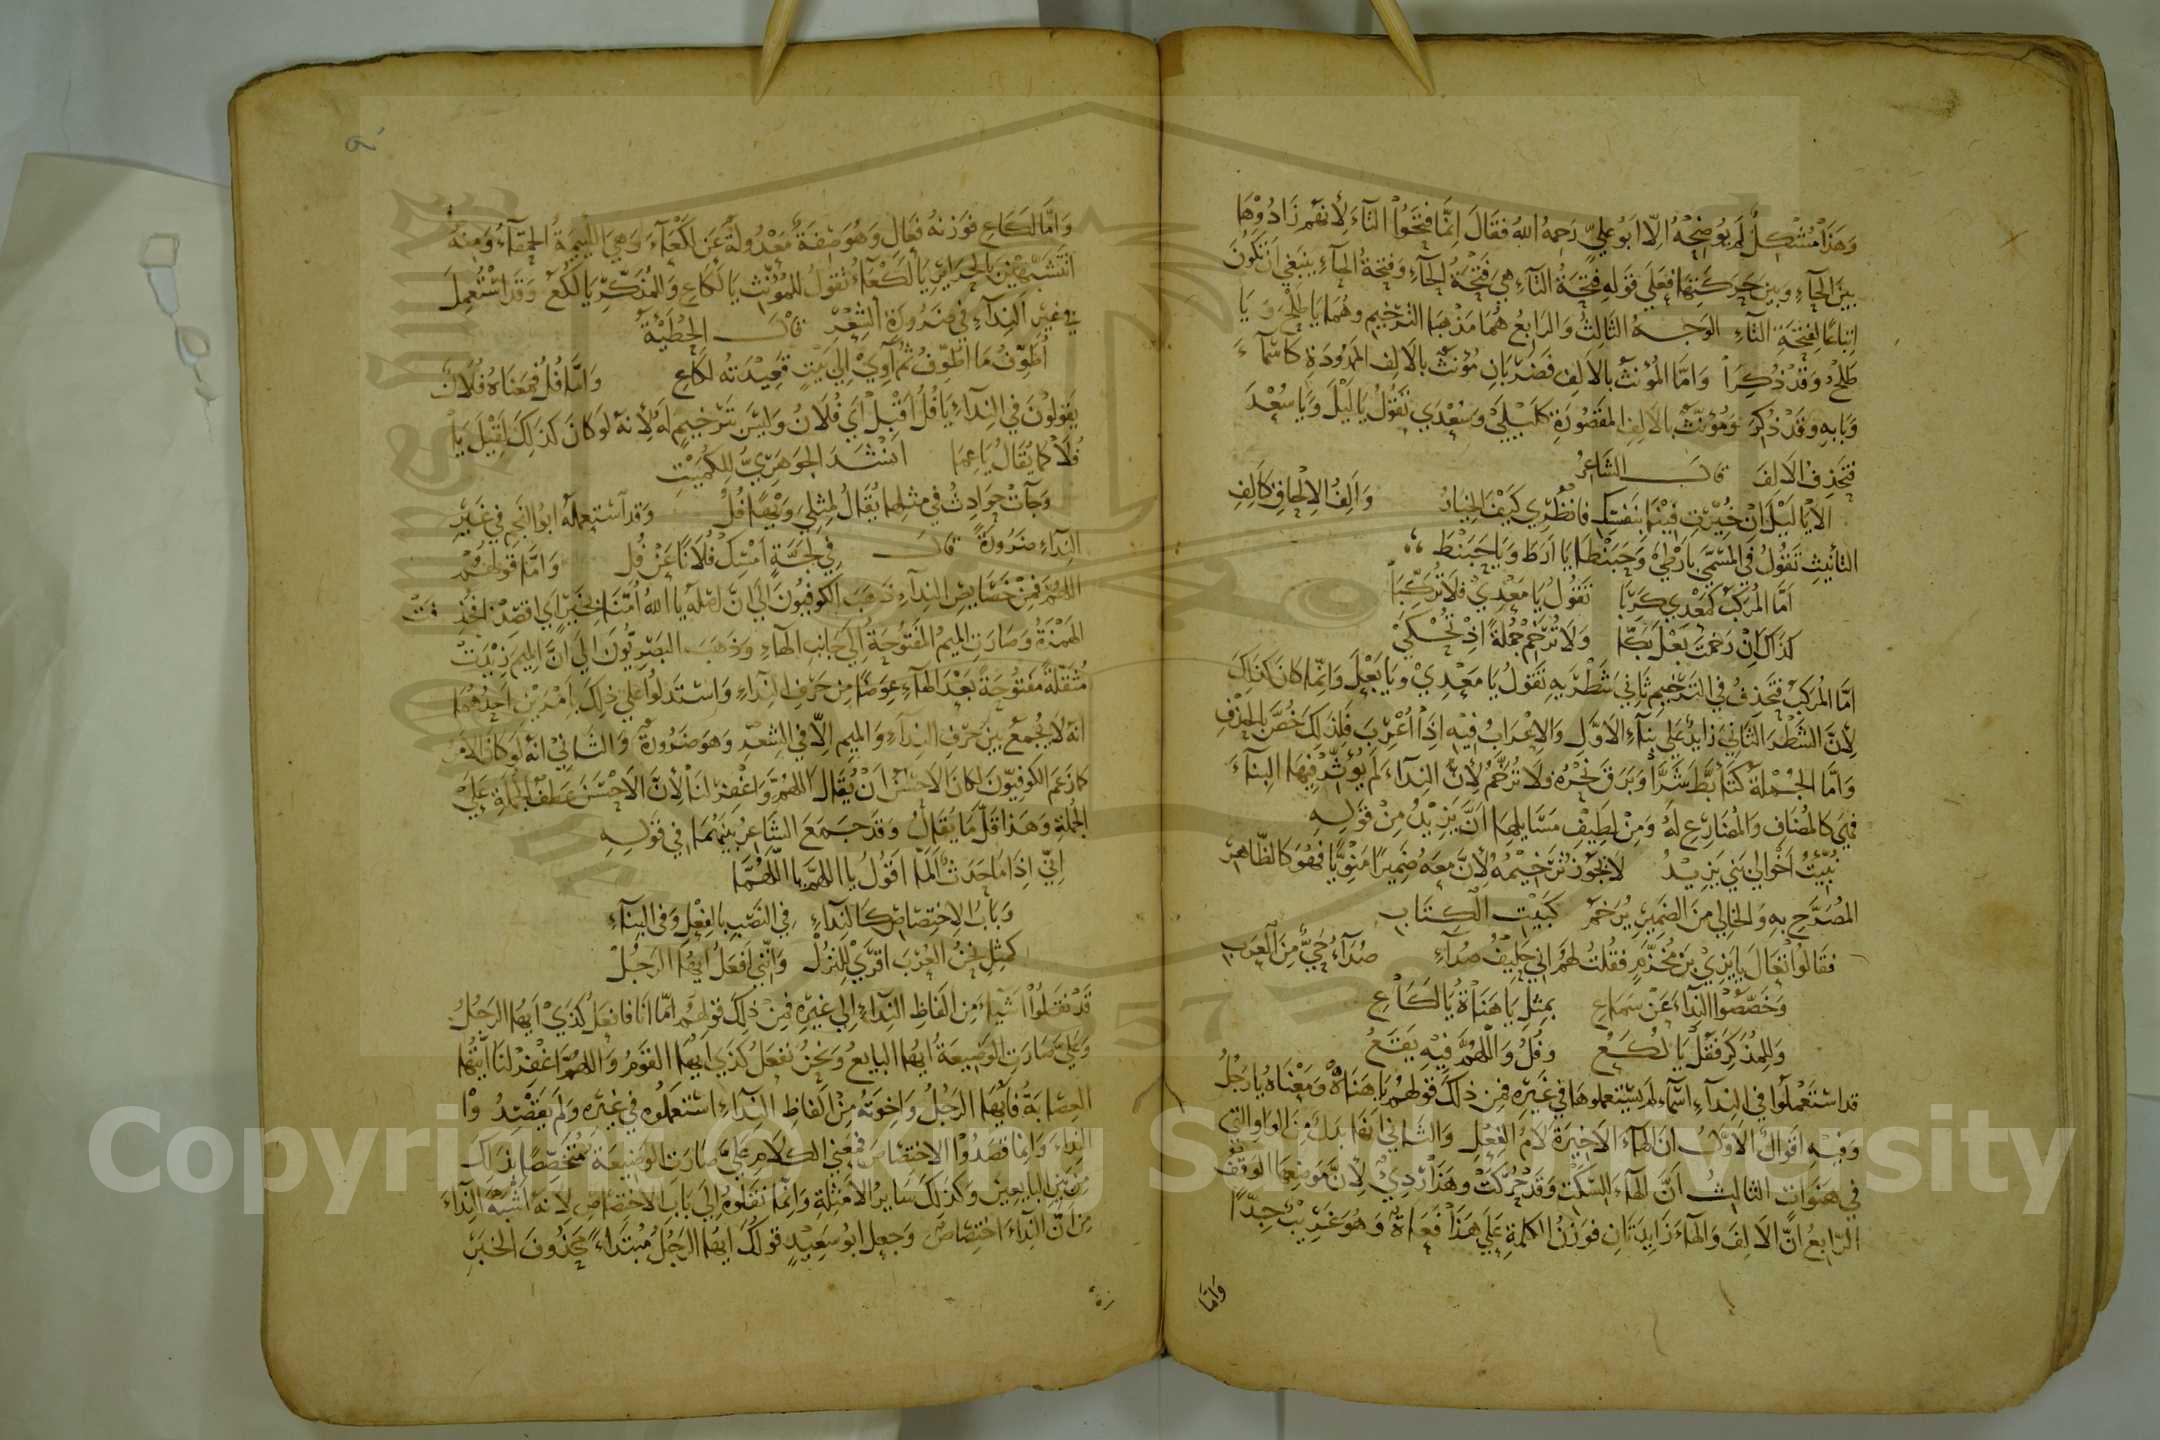 وَهَذَا مُشْكِلٌ لَمْ يُوضِحْهُ اِلَّا اَبُو عَلِيٍّ رَحِمَهُ اللهُ فَقَالَ اِنَّمَا فَتَحُوا التَّاءَ لِأَنَّهُم زَادُوْهَا
بَيْنَ الحَاءِ وَبَيْنَ حَرَكَتِهَا فَعَلَى قَوْلِهِ فَتْحَةُ التَّاءِ هِيَ فَتْحَةُ الحَاءِ وَفَتْحَةُ الحَاءِ يَنبَغِي اَنْ تَكُونَ
اِتبَاعًا لِفَتْحَةِ التَّاءِ الوَجْهُ الثَّالِثُ وَالرَّابِعُ هُمَا مَذْهَبَا التَّرْخِيمِ وهُمَا يَا طَلْحَ وَ يَا
طَلْحُ وَقَدْ ذُكِرَا وَاَمَّا المُؤَنَّثُ بالأَلِفِ فَضَرْبَانِ مُؤَنَّثٌ بالاَلِفِ المَمْدُودَةِ كَاَسْمَاءَ
وَبَابِهِ وَقَدْ ذُكِرَ وَمُؤَنَّثٌ بالاَلِفِ المَقْصُورَةِ كَلَيْلَى وَسُعْدَي تَقُولُ يَا لَيْلَ وَيَا سُعْدَ
فَتَحْذِفُ الاَلِفَ قال الشَّاعِرُ
اَلَا يَا لَيْلَ اِنْ خُيِّرْتِ فِيْنَا بِنَفْسِكِ فَانْظُرِي كَيْفَ الخِيَارُ وَاَلِفُ الاِلْحَاقِ كَاَلِفِ
التأنِيثِ تَقُولُ فِي المُسَمَّي بأَرْطَى وَحَبَنْطَا يَا اَرْطَ وَيَا حَبَنْطَ
اَمَّا المُرَكَّبُ كَمَعْدِي كَرِبَا تَقُولُ يَا مَعْدِيْ فَلَا تُرَكِّبَا
كَذَاكَ اِنْ رَخَّمْتَ بَعْلَ بَكَّا وَلَا تُرَخِّمْ جُمْلَةً اِذْ تُحْكَيْ
اَمَّا المُرَكَّبُ فَتَحْذِفُ فِي التَّرْخِيمِ ثَانِيَ شَطْرَيْهِ تَقُولُ يَا مَعْدِيْ وَيَا بَعْلَ وَاِنَّمَا كَانَ كَذَلِكَ
لِأَنَّ الشَّطْرَ الثَّانِيَ زَايِدٌ عَلَي بِنَاءِ الاَوَّلِ وَالاِعْرَابُ فِيْهِ اِذَا اُعْرِبَ فَلِذَلِكَ خُصَّ بِالحَذْفِ
وَاَمَّا الجُمْلَةُ كَتَأَبَّطَ شَرًّا وَبَرَقَ نَحْرُهُ فَلَا تُرَخَّمُ لِأَنَّ النِدَاءَ لَم يُؤَثِّرْ فِيْهَا البِنَاءَ
فَهِيَ كَالمُضَافِ وَالمُضَارِعِ لَهُ وَمِنْ لَطِيْفِ مَسَايِلِهَا اَنَّ يَزِيْدُ مِنْ قَوْلِهِ
نُبِّئْتُ اَخْوَالِيْ بَنِي يَزِيْدُ لَا يَجُوزُ تَرْخِيْمُهُ لِأَنَّ مَعَهُ ضَمِيرًا مَنْوِيًّا فَهُوَ كَالظَّاهِرِ
المُصَرَّحِ بِهِ وَالخَالِي مِنَ الضَّمِيرِ يُرَخَّمُ كَبَيْتِ الْكِتَابِ
فَقَالُوا تَعَالَ يا يَزِيْ بنَ مُخَرِّمٍ فَقُلْتُ لَهُم اِنِّي حَلِيْفُ صُدَاءِ صُدَاءُ حَيٌّ مِنَ الْعَرَبِ
وَخَصَّصُوا النِّدَاءَ عَنْ سَمَاعِ بِمِثْلِ يَا هَنَاةُ يَا لَكَاعِ
وَلِلْمُذَكَّرِ فَقُلْ يَا لُكَعُ وَفُلُ وَاللّهُمَّ فِيْهِ يَقَعُ
قد اسْتَعْمَلُوا في النِدَاءِ اَسْمَاءً لم يَسْتَعملوهَا في غَيْرِهِ فَمِنْ ذَلِكَ قَوْلُهُم يَا هَنَاهُ وَمَعْنَاهُ يَا رَجُلُ
وَفِيْهِ اَقْوَالٌ الأَوَّلُ انَّ الهَاءَ الاَخِيْرَةَ لَامُ الفِعْلِ وَالثَانِي اَنَّهَا بَدَلٌ مِنَ الوَاوِ الَّتِي
فِي هَنَوَاتٍ الثالِثُ اَنَّ الهَاءَ للسَّكْتِ وَقَدْ حُرِّكَتْ وَهَذَا رَدِيْ لِأَنَّ مَوْضِعَهَا الوَقْفُ
الرَّابِعُ اَنَّ الاَلِفَ وَالهَاءَ زَايِدَتَانِ فَوَزْنُ الكَلِمَةِ عَلَي هَذَا فَعَاهُ وَهُوَ غَرِيْبٌ جِدًّا
وَامَّا
وَاَمَّا لَكَاعِ فَوَزْنُهُ فَعَالِ وَهُوَ صِفَةٌ مَعْدُولَةٌ عَن لَكْعَاءَ وَهِيَ اللَّئِيمَةُ الحَمْقَاءُ وَمِنْهُ
اَتَتَشَبَّهِيْنَ بالحَرَائِرِ يَا لَكْعَاءُ تَقُولُ لِلمُؤَنَّثِ يَا لَكَاعِ وَالمُذَكَّرِ يَا لُكَعُ وَقَدِ اسْتُعْمِلَ
فِي غَيْرِ النِّدَاءِ فِي ضَرُورَةِ الشِّعْرِ قال الحُطَيْئَةُ
اُطَوِّفُ مَا اُطَوِّفُ ثُمَّ آوِيْ اِلَي بَيْتٍ قَعِيْدَتُهُ لَكَاعِ وَاَمَّا فُلُ فَمَعْنَاهُ فُلَانٌ
يَقُولُوْنَ فِي النِدَاءِ يَا فُلُ اَقْبِلْ اَيْ فُلَانُ وَلَيْسَ تَرْخِيمٍ لَهُ لِأَنهُ لَوْ كَانَ كَذَلِكَ لَقِيْلَ يَا
فُلَا كَمَا يُقَالُ يَا عِمَا اَنْشَدَ الجَوهَرِيُّ لِلكُمَيْتِ
وَجَآتْ حَوَادِثُ في مثلِهَا يُقَالُ لِمِثْلِيَ وَيْهًا فُلُ وَقَد اسْتَعمَلَهُ اَبُو النَّجمِ فِي غَيْرِ
النِدَاءِ ضَرُورَةً قال فِي لَجَّةٍ اَمْسِكْ فُلَانًا عَنْ فُلِ وَامَّا قَوْلُهُمْ
اللّهُمَّ فَمِنْ خَصَايِصِ النِدَاءِ ذَهَبَ الكُوفِيُّونَ اِلَيْ اَنَّ اَصْلَهُ يَا اللهُ اُمَّنَا بِخَيْرٍ اَي اقصِدْنَا فَحُذِفَتْ
الهَمْزَةُ وَصَارَتِ المِيمُ المَفتُوحَةُ اِلَيْ جَانِبِ الهَاءِ وَذَهَبَ البَصرِيُّونَ اِلَي اَنَّ المِيْمَ زِيْدَتْ
مُثَقَّلَةً مَفتُوحَةً بَعْدَ الهَاءِ عِوَضًا مِن حَرْفِ النِدَاءِ وَاسْتَدَلُّوا عَلي ذلِكَ بِاَمْرَيْنِ اَحَدُهُمَا
اَنهُ لَا يُجْمَعُ بَيْنَ حَرْفِ النِدَاءِ وَالمِيمِ اِلَّا فِي الشِّعْرِ وَهُوَ ضَرُورَةٌ وَالثَّانِيْ اَنَّهُ لَو كَانَ الامْرُ
كَمَا زَعَمَ الكُوفِيُّونَ لكَانَ الاَحْسَنُ اَنْ يُقَالَ اللّهُمَّ وَاغْفِرْ لَنَا لِأَنَّ الاَحْسَنَ عَطْفُ الجُمْلَةِ عَلَيْ
الجُملَةِ وَهَذَا قَلَّ مَا يُقَالُ وَقَد جَمَعَ الشَّاعِرُ بَيْنَهُمَا فِي قَوْلِهِ
اِنِّي اِذَا مَا حَدَثٌ اَلَمَّا اَقُولُ يَا اللهُمَّ يَا اللّهُمَّا
وَبَابُ الاِختِصَاصِ كَالنِّدَاءِ فِي النَّصْبِ بِالفِعْلِ وَفي البِنَاءِ
كَمِثْلِ نحنُ العُرْبَ اَقرَيْ لِلنُزُلْ وَاِنَّنِي اَفعَلُ اَيُّهَا الرَجُلْ
قَدْ نَقَلُوْا اَشْيَاءَ مِن اَلْفَاظِ النِّدَاءِ اِلَي غَيْرِهِ فَمِنْ ذَلِكَ قَوْلُهُم اَمَّا اَنَا فَافْعَلُ كَذَيْ اَيُّهَا الرَجُلُ
وَعَلَيَّ صَارَتِ الوَضِيعَةُ ايُّهَا البايعُ وَنَحْنُ نفعَلُ كَذَي اَيُّهَا القَومُ وَاللهُمَّ اغْفِرْ لَنَا اَيَّتُهَا
العِصَابَةُ فَاَيُّهَا الرَّجُلُ وَاِخوَتُهُ مِنْ اَلفَاظِ النِّدَاءِ اسْتَعمَلُوه في غَيْرِهِ وَلَم يَقصِدُوْا
النِداءَ وَاِنما قصَدُوْا الاختِصَاصَ فَمَعني الكَلَامِ عَلَيَّ صَارَت الوَضِيعَةُ مُتَخَصِّصًا بِذَلِكَ
مِنْ بَيْنِ البايعينَ وَكَذَلِكَ سَايِرُ الأَمثِلَةِ وَاِنَّمَا نَقَلُوهُ اِلَى بَابِ الاختِصَاصِ لِأَنهُ اَشْبَهَ النِّدَاءَ
مِن اَنَّ النِّدَاءَ اختِصَاصٌ وَجَعَل اَبُو سَعِيْدٍ قَوْلَكَ ايُّهَا الرَجُلُ مُبتَدَاءً مَحذُوفَ الخَبَرِ
Copyright © King Saud University